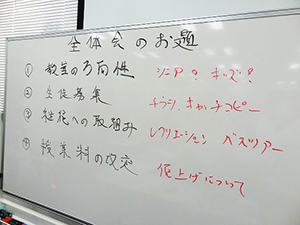 全体会のお題
① 教室の方向性 シニア? キッズ?
② 生徒募集 チラシ、キャッチコピー
③ 社尾への取組み レクリエーション バスツアー
④ 授業料の改定 値上げについて